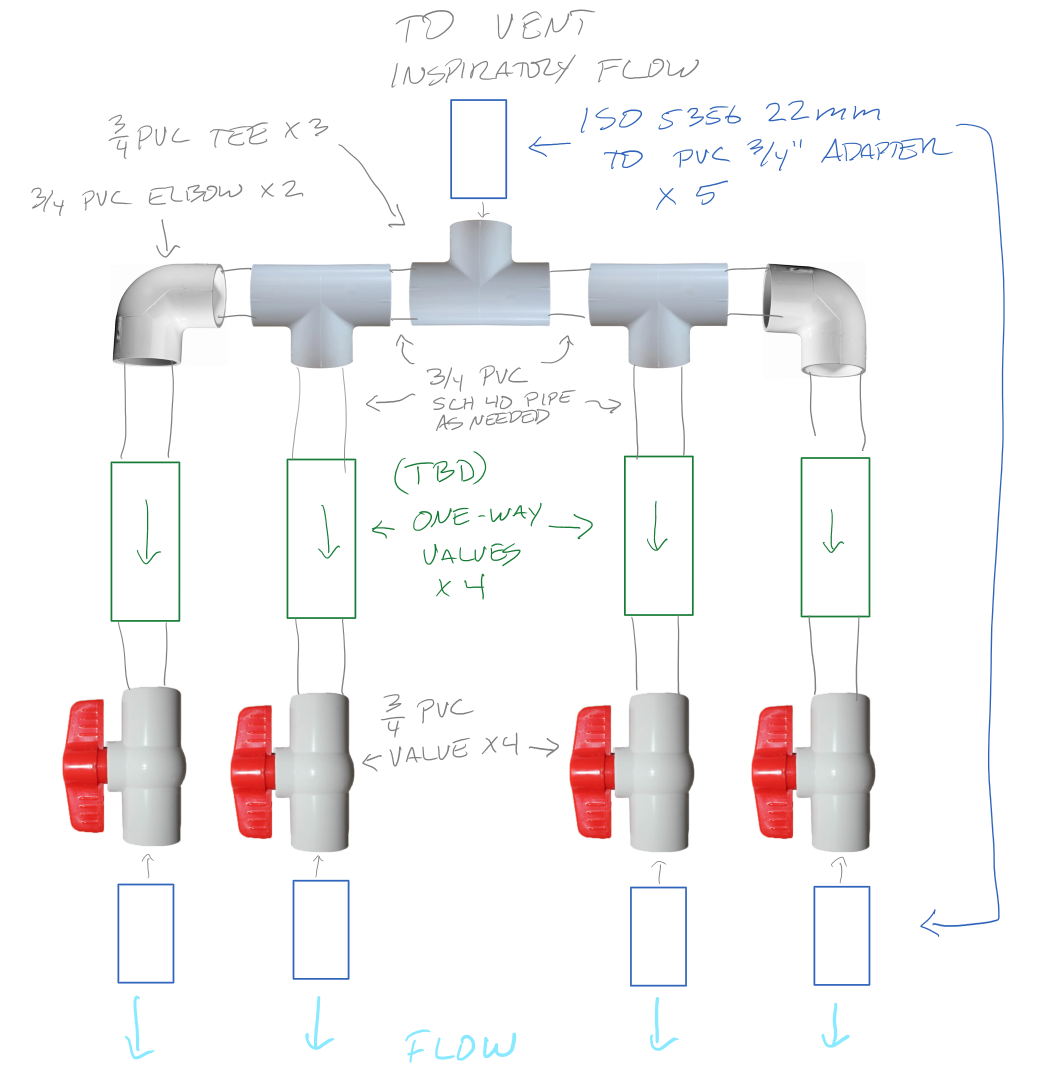 TO VENT
INSPIRATORY FLOW
3/4 PVC TEE X 3
3/4 PVC ELBOW X 2
ISO 5356 22mm
TO PVC 3/4" ADAPTER
X 5
3/4 PVC
SCH 40 PIPE
AS NEEDED
(TBD)
ONE-WAY
VALUES
X 4
3/4 PVC
VALUE X4
FLOW